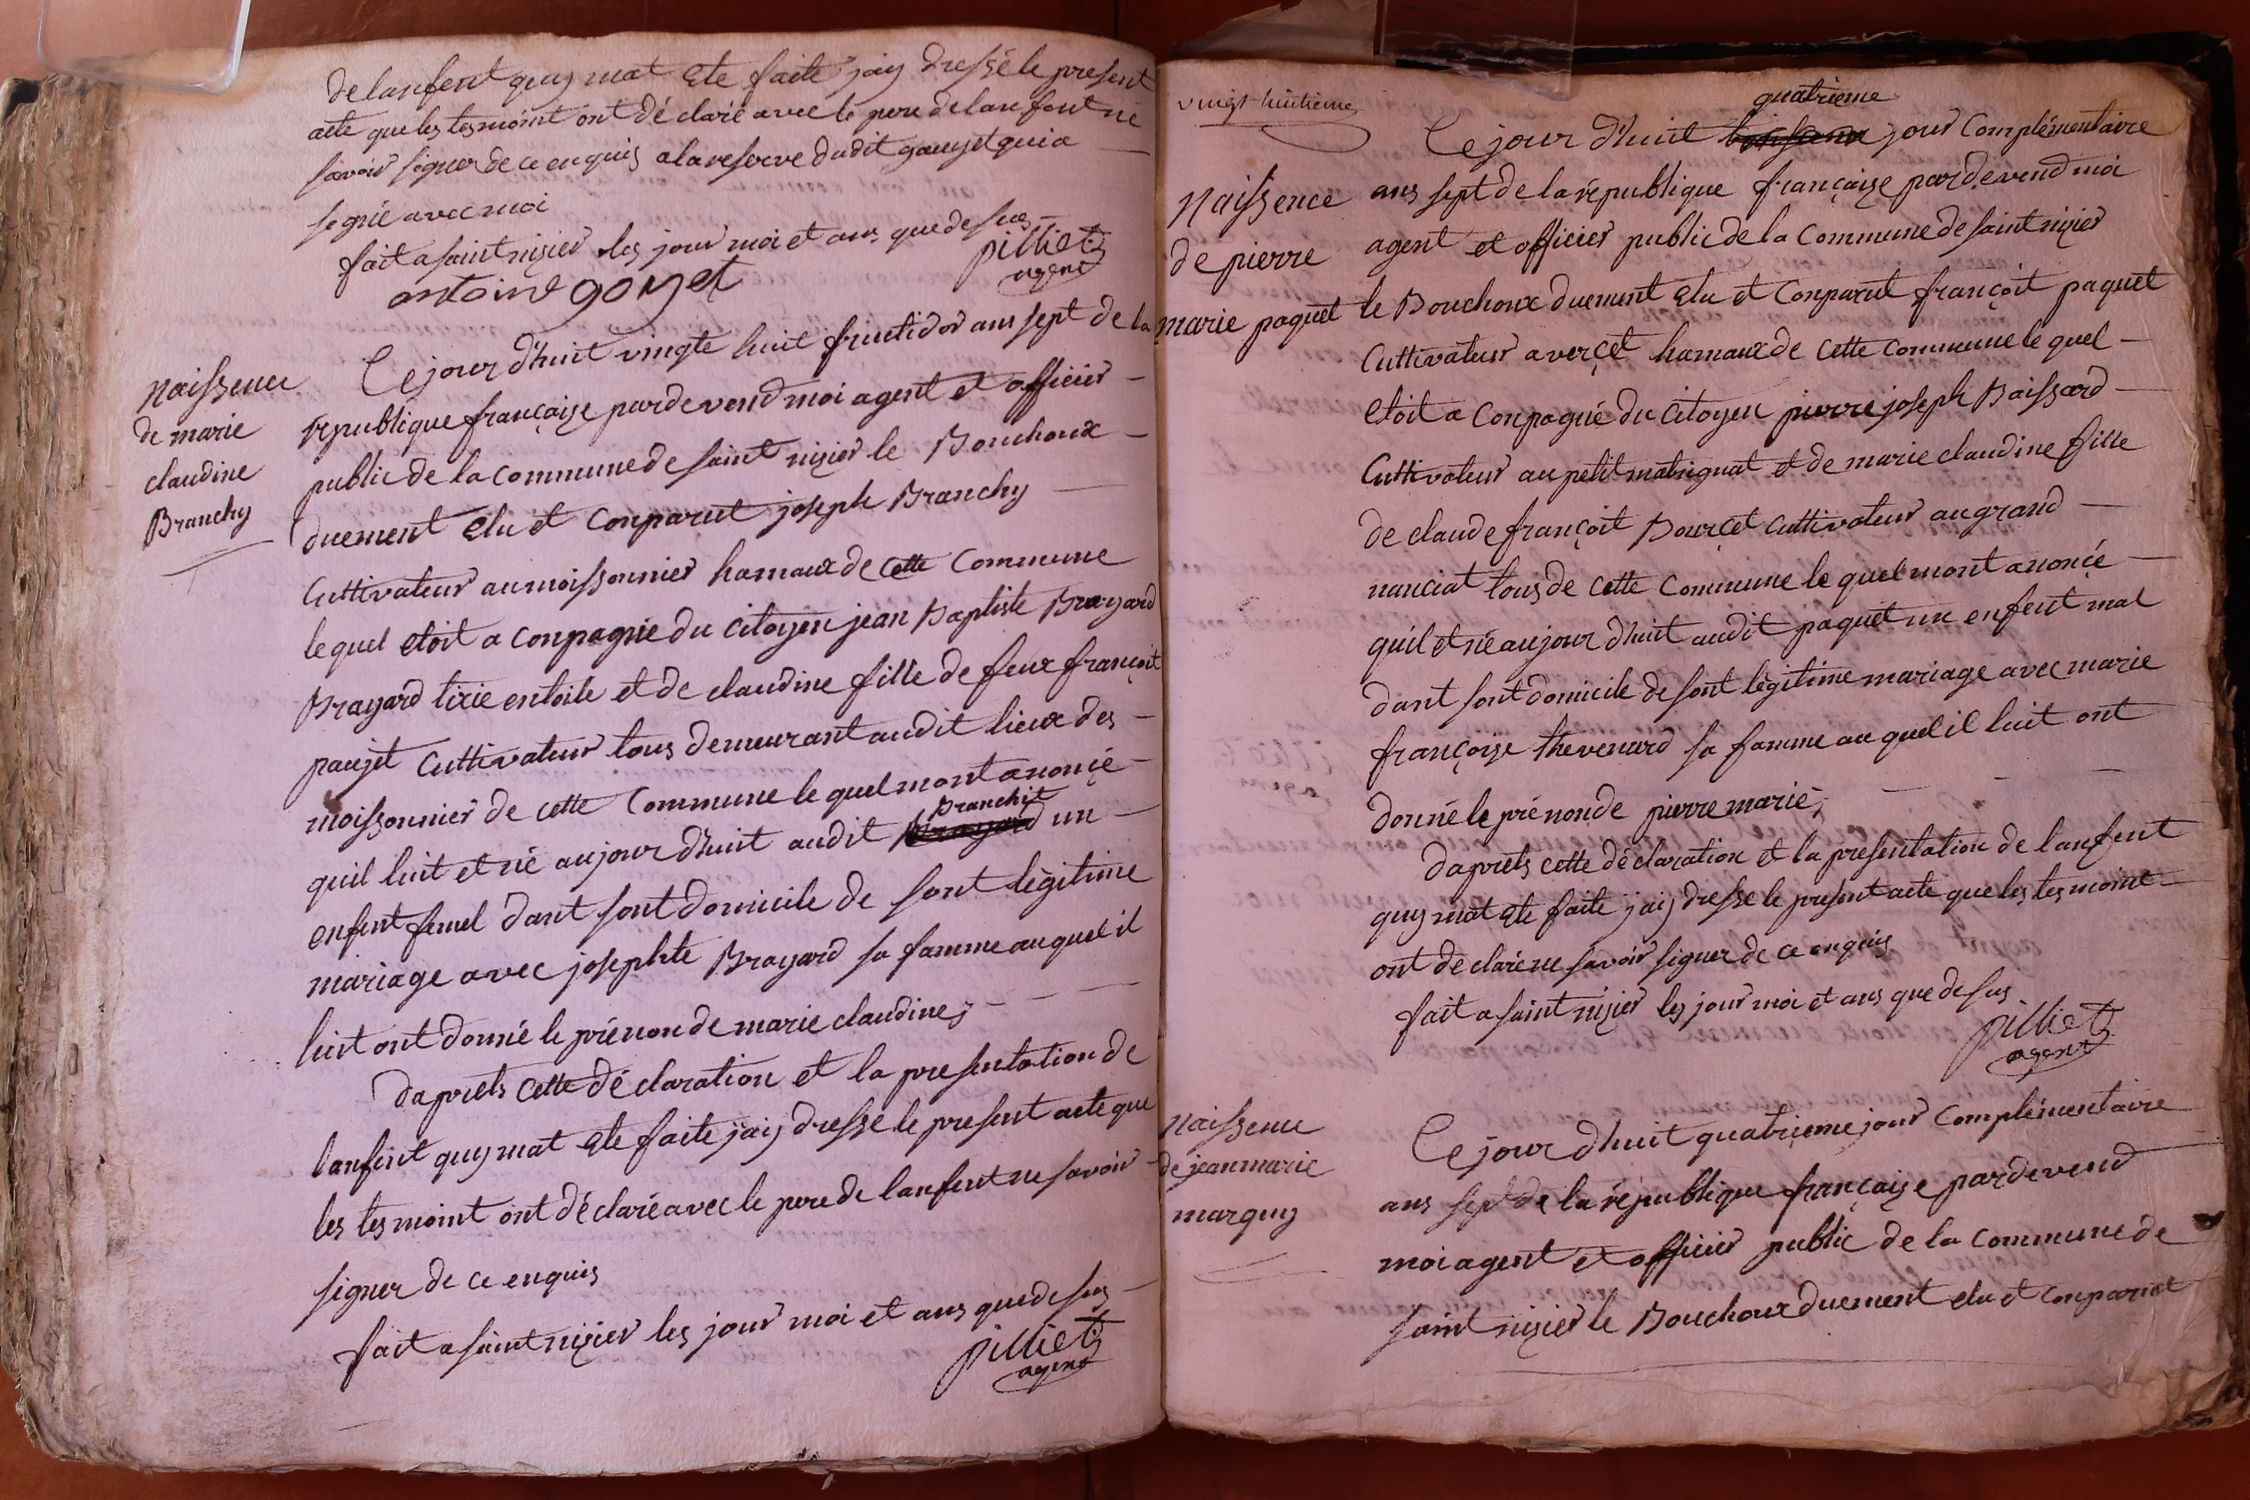 de lanfent quy mat ete faite jay dressé le present
acte que les tesmoint ont déclaré avec le pere de lanfent ne
savoir signer de ce enquis a la reserve dudit gouyet qui a
signé avec moi
fait a saint nizier les jour moi et ans que desus
pilliet
agent
antoine goyet
Naissence
de marie
claudine
Branchy
Ce jour d'huit vingte huit fructidor ans sept de la
république française pardevend moi agent et officier
public de la commune de saint nizier le Bouchoux
duement elu et conparut joseph Branchy
Cultivateur au moissonnier hamaux de cette commune
le quel etoit a conpagnie du citoyen jean Baptiste Brayard
Brayard tixie entoile et de claudine fille de feux françoit
paujet Cultivateur tous demeurant audit lieux des
moissonnier de cette commune le quel mont anoncé
Branchit
quil luit et né aujour d'huit audit Brayard un
enfent femel dant sont domicile de sont légitime
mariage avec josephte Brayard sa famme au quel il
luit ont donné le prénon de marie claudine;
daprels cette déclaration et la presentation de
lanfent quy mat ete faite jaij dresse le present acte que
les tesmoint ont déclaré avec le pere de lanfent ne savoir
signer de ce enquis
fait a saint nizier les jour moi et ans que desus
pilliet
agent
vingt huitieme
Naissence
de pierre
marie paquet
quatrieme
Ce jour d'huit jour Complémentaire
ans sept de la république française pardevend moi
agent et officier public de la Commune de saint nizier
le Bouchoux duement elu et Conparut françoit paquet
Cultivateur a verçet hamaux de cette commune le quel
etoit a Conpagnié du Citoyen pierre joseph Boissard
Cultivateur au petit matrignat et de marie claudine fille
de claude françoit Bourçet cultivateur au grand
nanciat tous de cette Commune le quel mont anoncé
quil et né aujour d'huit audit paquet un enfent mal
dant sont domicile de sont légitime mariage avec marie
françoise thevenard sa famme au quel il luit ont
donné le prénon de pierre marie;
daprels cette déclaration et la presentation de lanfent
quy mat ete faite jaij dresse le present acte que les tesmoint
ont déclaré ne savoir signer de ce enquis
fait a saint nizier les jour moi et ans que desus
pilliet
agent
Naissence
de jean marie
marquy
Ce jour d'huit quatrieme jour Complémentaire
ans sept de la république française pardevend
moi agent et officier public de la commune de
saint nizier le Bouchoux duement elu et conparut